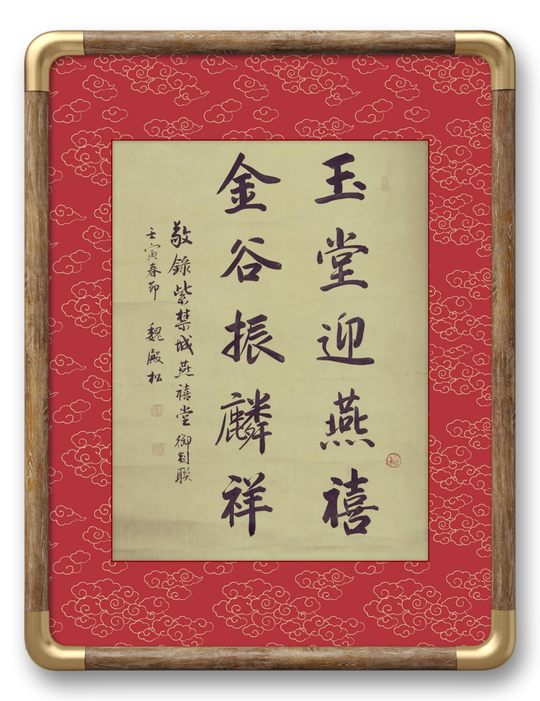 玉堂迎燕禧
金谷振麟祥
敬錄紫禁城燕禧堂御制聯
壬寅春節 魏殿松